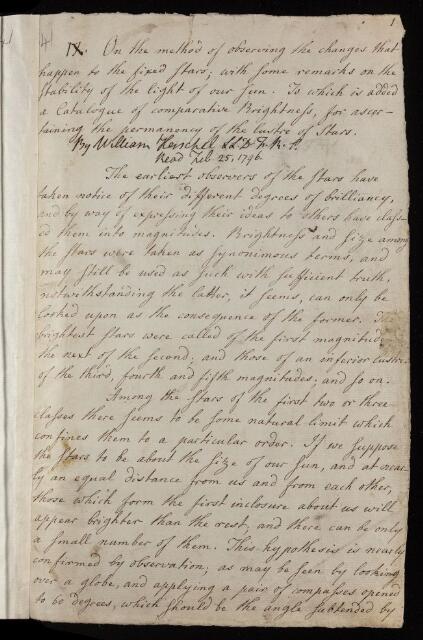 1
4
IX. On the method of observing the changes that
happen to the fixed Stars; with some remarks on the
stability of the light of our Sun. To which is added
a Catalogue of comparative Brightness, for ascer-
taining the permanency of the lustre of Stars.
By William Herschel LL.D. F.R.S.
Read Feb. 25, 1796.
The earliest observers of the Stars have
taken notice of their different degrees of brilliancy,
and by way of expressing their ideas to others have class-
ed them into magnitudes. Brightness and size among
the stars were taken as synonimous terms, and
may still be used as such with sufficient truth,
notwithstanding the latter, it seems, can only be
looked upon as the consequence of the former. The
brightest stars were called of the first magnitude
the next of the second; and those of an inferior lustre
of the third, fourth and fifth magnitudes; and so on.
Among the stars of the first two or three
classes there seems to be some natural limit which
confines them to a particular order. If we suppose
the stars to be about the size of our sun, and at near-
ly an equal distance from us and from each other,
those which form the first inclosure about us will
appear brighter than the rest, and there can be only
a small number of them. This hypothesis is nearly
confirmed by observation; as may be seen by looking
over a globe, and applying a pair of compasses opened
to 60 degrees, which should be the angle subtended by